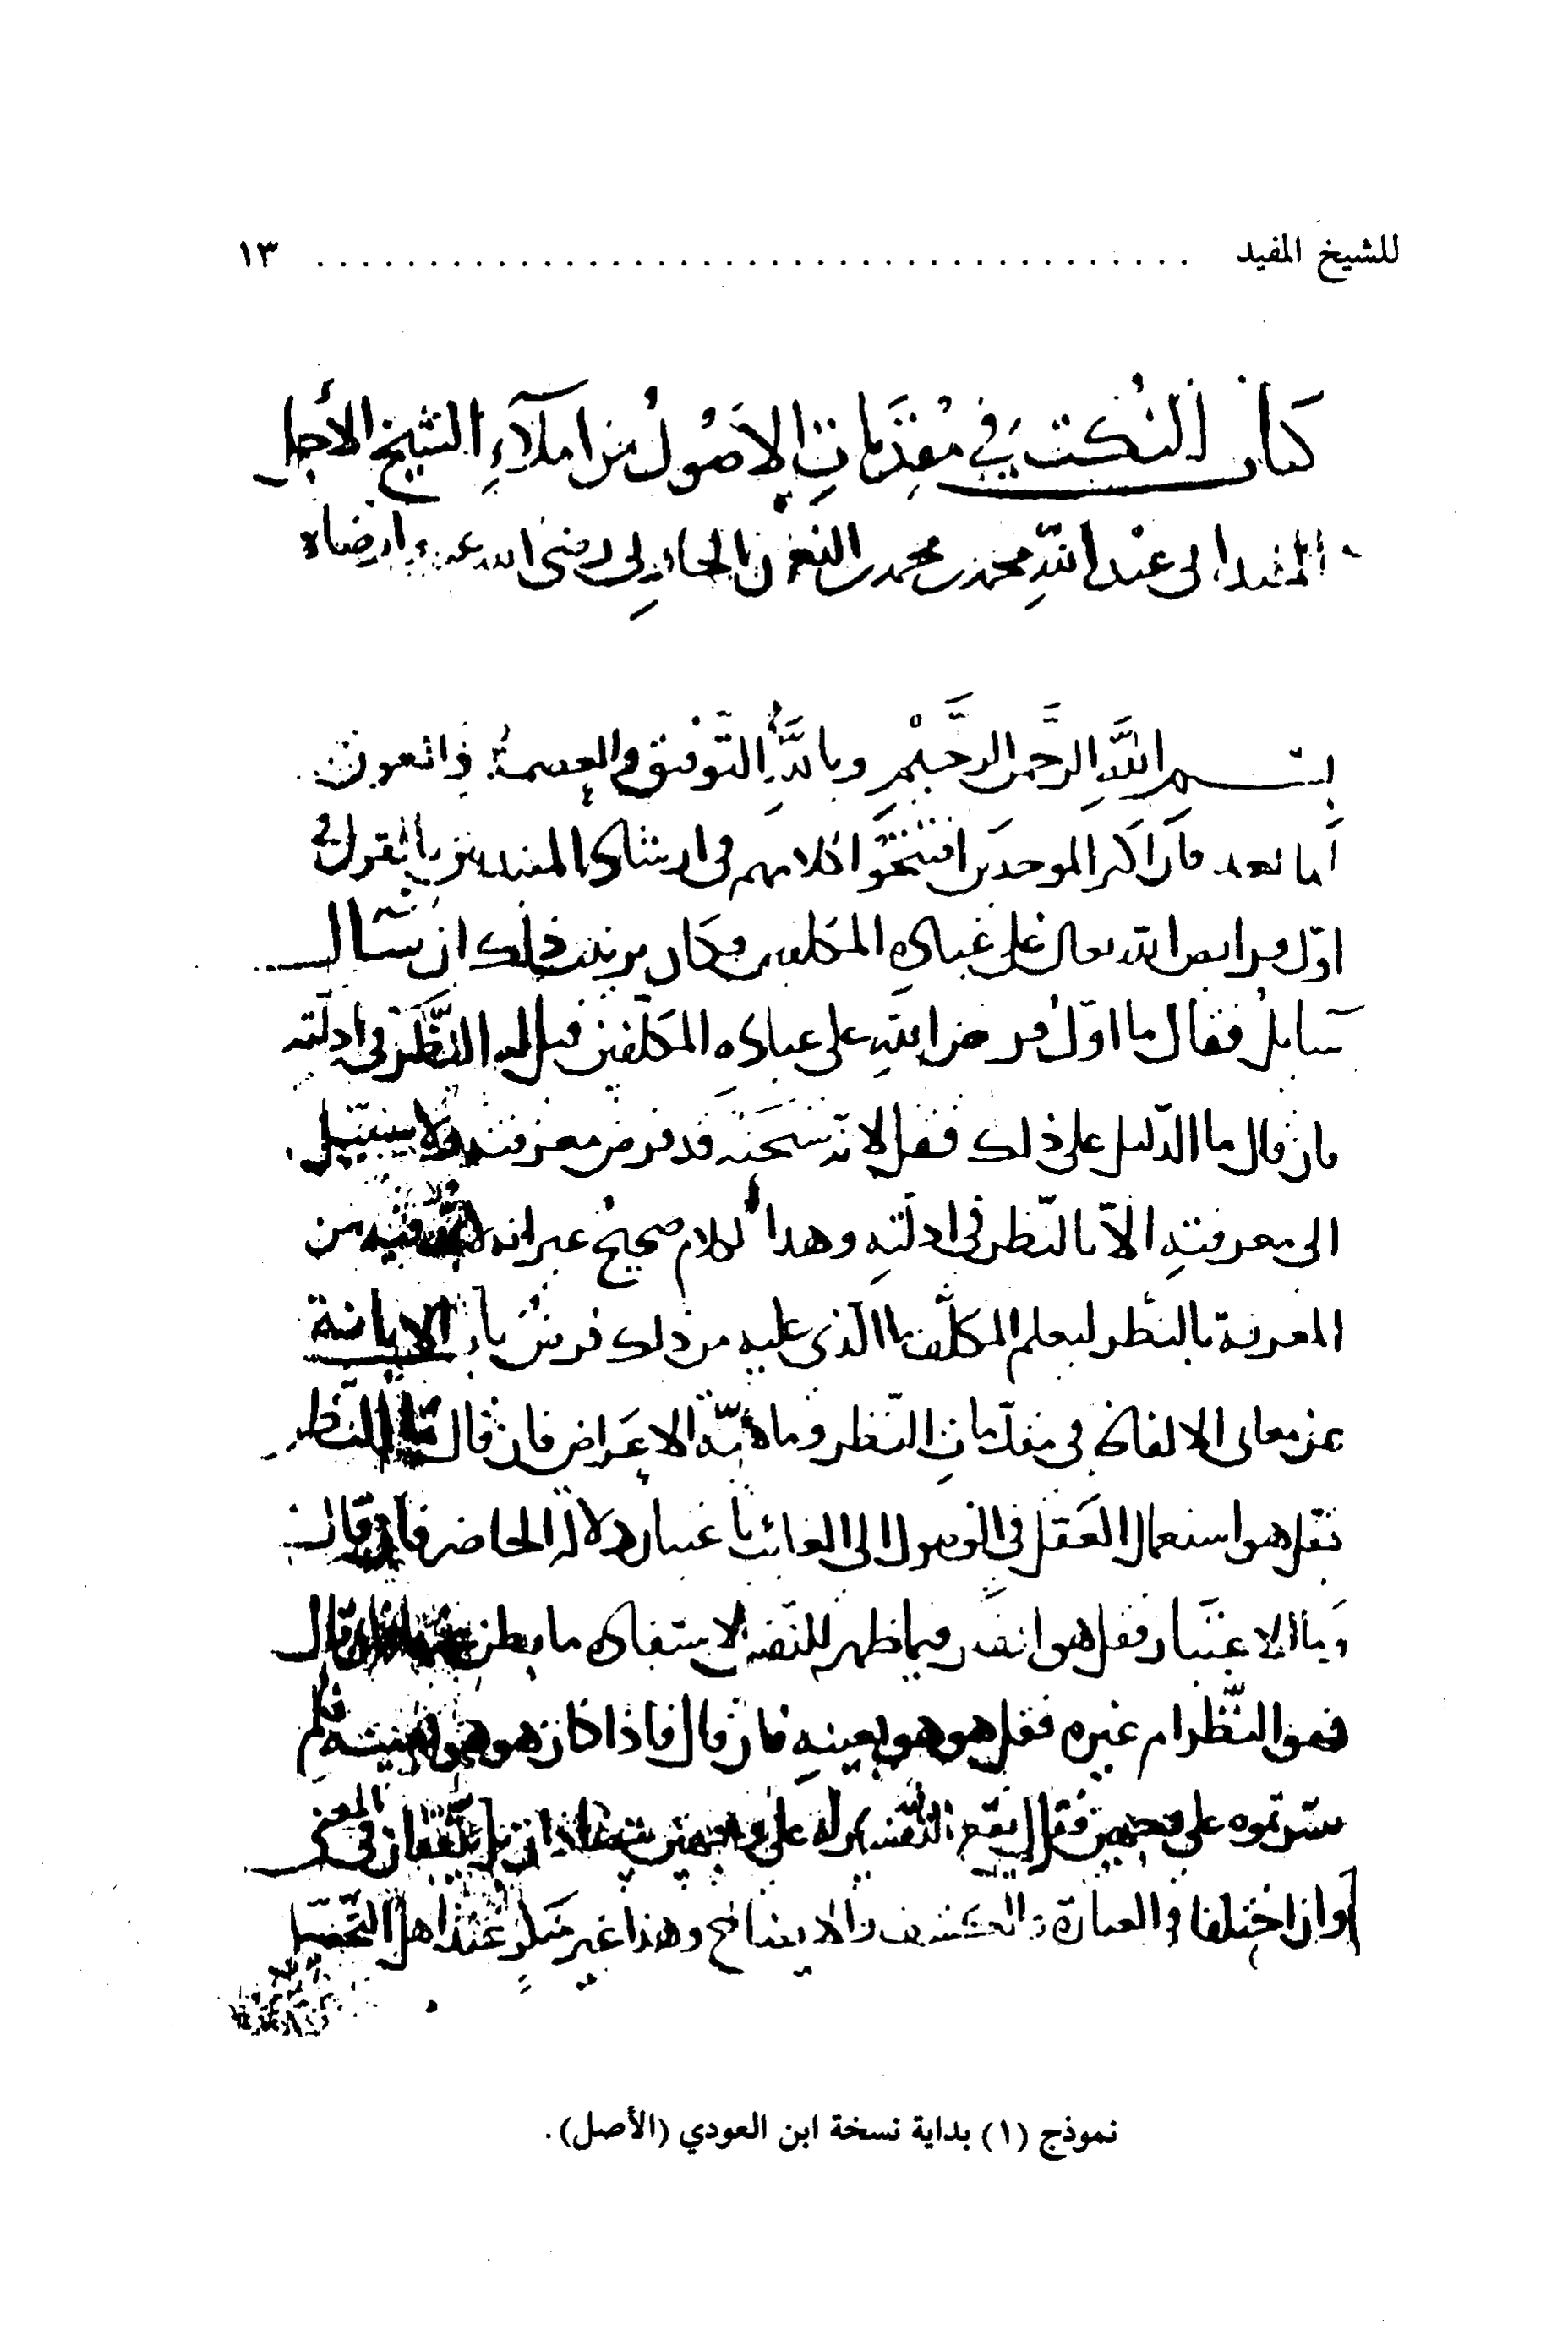 للشيخ المفيد ........................................ ١٣
كتاب النُكت في مقدمات الاصُول من املآءِ الشيخ الأجل
المفيد ابى عبد اللهِ محمد بن محمد بن النعمن الحارثى رضى الله عنه وارضاه
بسم اللَّهِ الرَّحمن الرحيْمِ وباللَّهِ التَّوفيق والعصمة والعون
اما بعد فان اكثر الموحدين افتتحوا كلامهم فى ارشاد المبتدىين بالقول فى
اوّل فرايض الله تعالى على عباده المكلفين وكان ترتيب ذلك ان سال
سايل فقال ما اوّل فرض اللهِ على عبادهِ المكلّفين فقل له النَّظر فى ادلّته
فان قال ما الدّليل على ذلك فقل لانّه سبحنه قد فرض معرفته ولا سبيل
الى معرفتهِ الاّ بالنّظر فى ادلّتهِ وهذا كلام صحيح غير انه لابد فيه من
المعرفة بالنظر ليعلم المكلّف ما الّذى عليه من ذلك فرض باب الابانة
عن معانى الالفاظ فى مقدّماتِ النّظر وماهيّه الاعراض فان قال ما النّظر
فقل هو استعمال العَقل فى الوصول الى الغائب باعتبار دلاله الحاضر فان قال
وما الاعتبار فقل هو فيما ظهر للنّفس لاستفاده ما بطن قال
فهو النّظر ام غيره فقل هو هو بعينهِ فان قال فاذا كان هو هو بعينه فلم
على وجهين فقل على وجهين يتفقان فى المعنى
وان اختلفا فى العبارة والكشف والايضاح وهذا غير منكرٍ عند اهل التّحصيل
نموذج (١) بداية نسخة ابن العودي (الأصل).